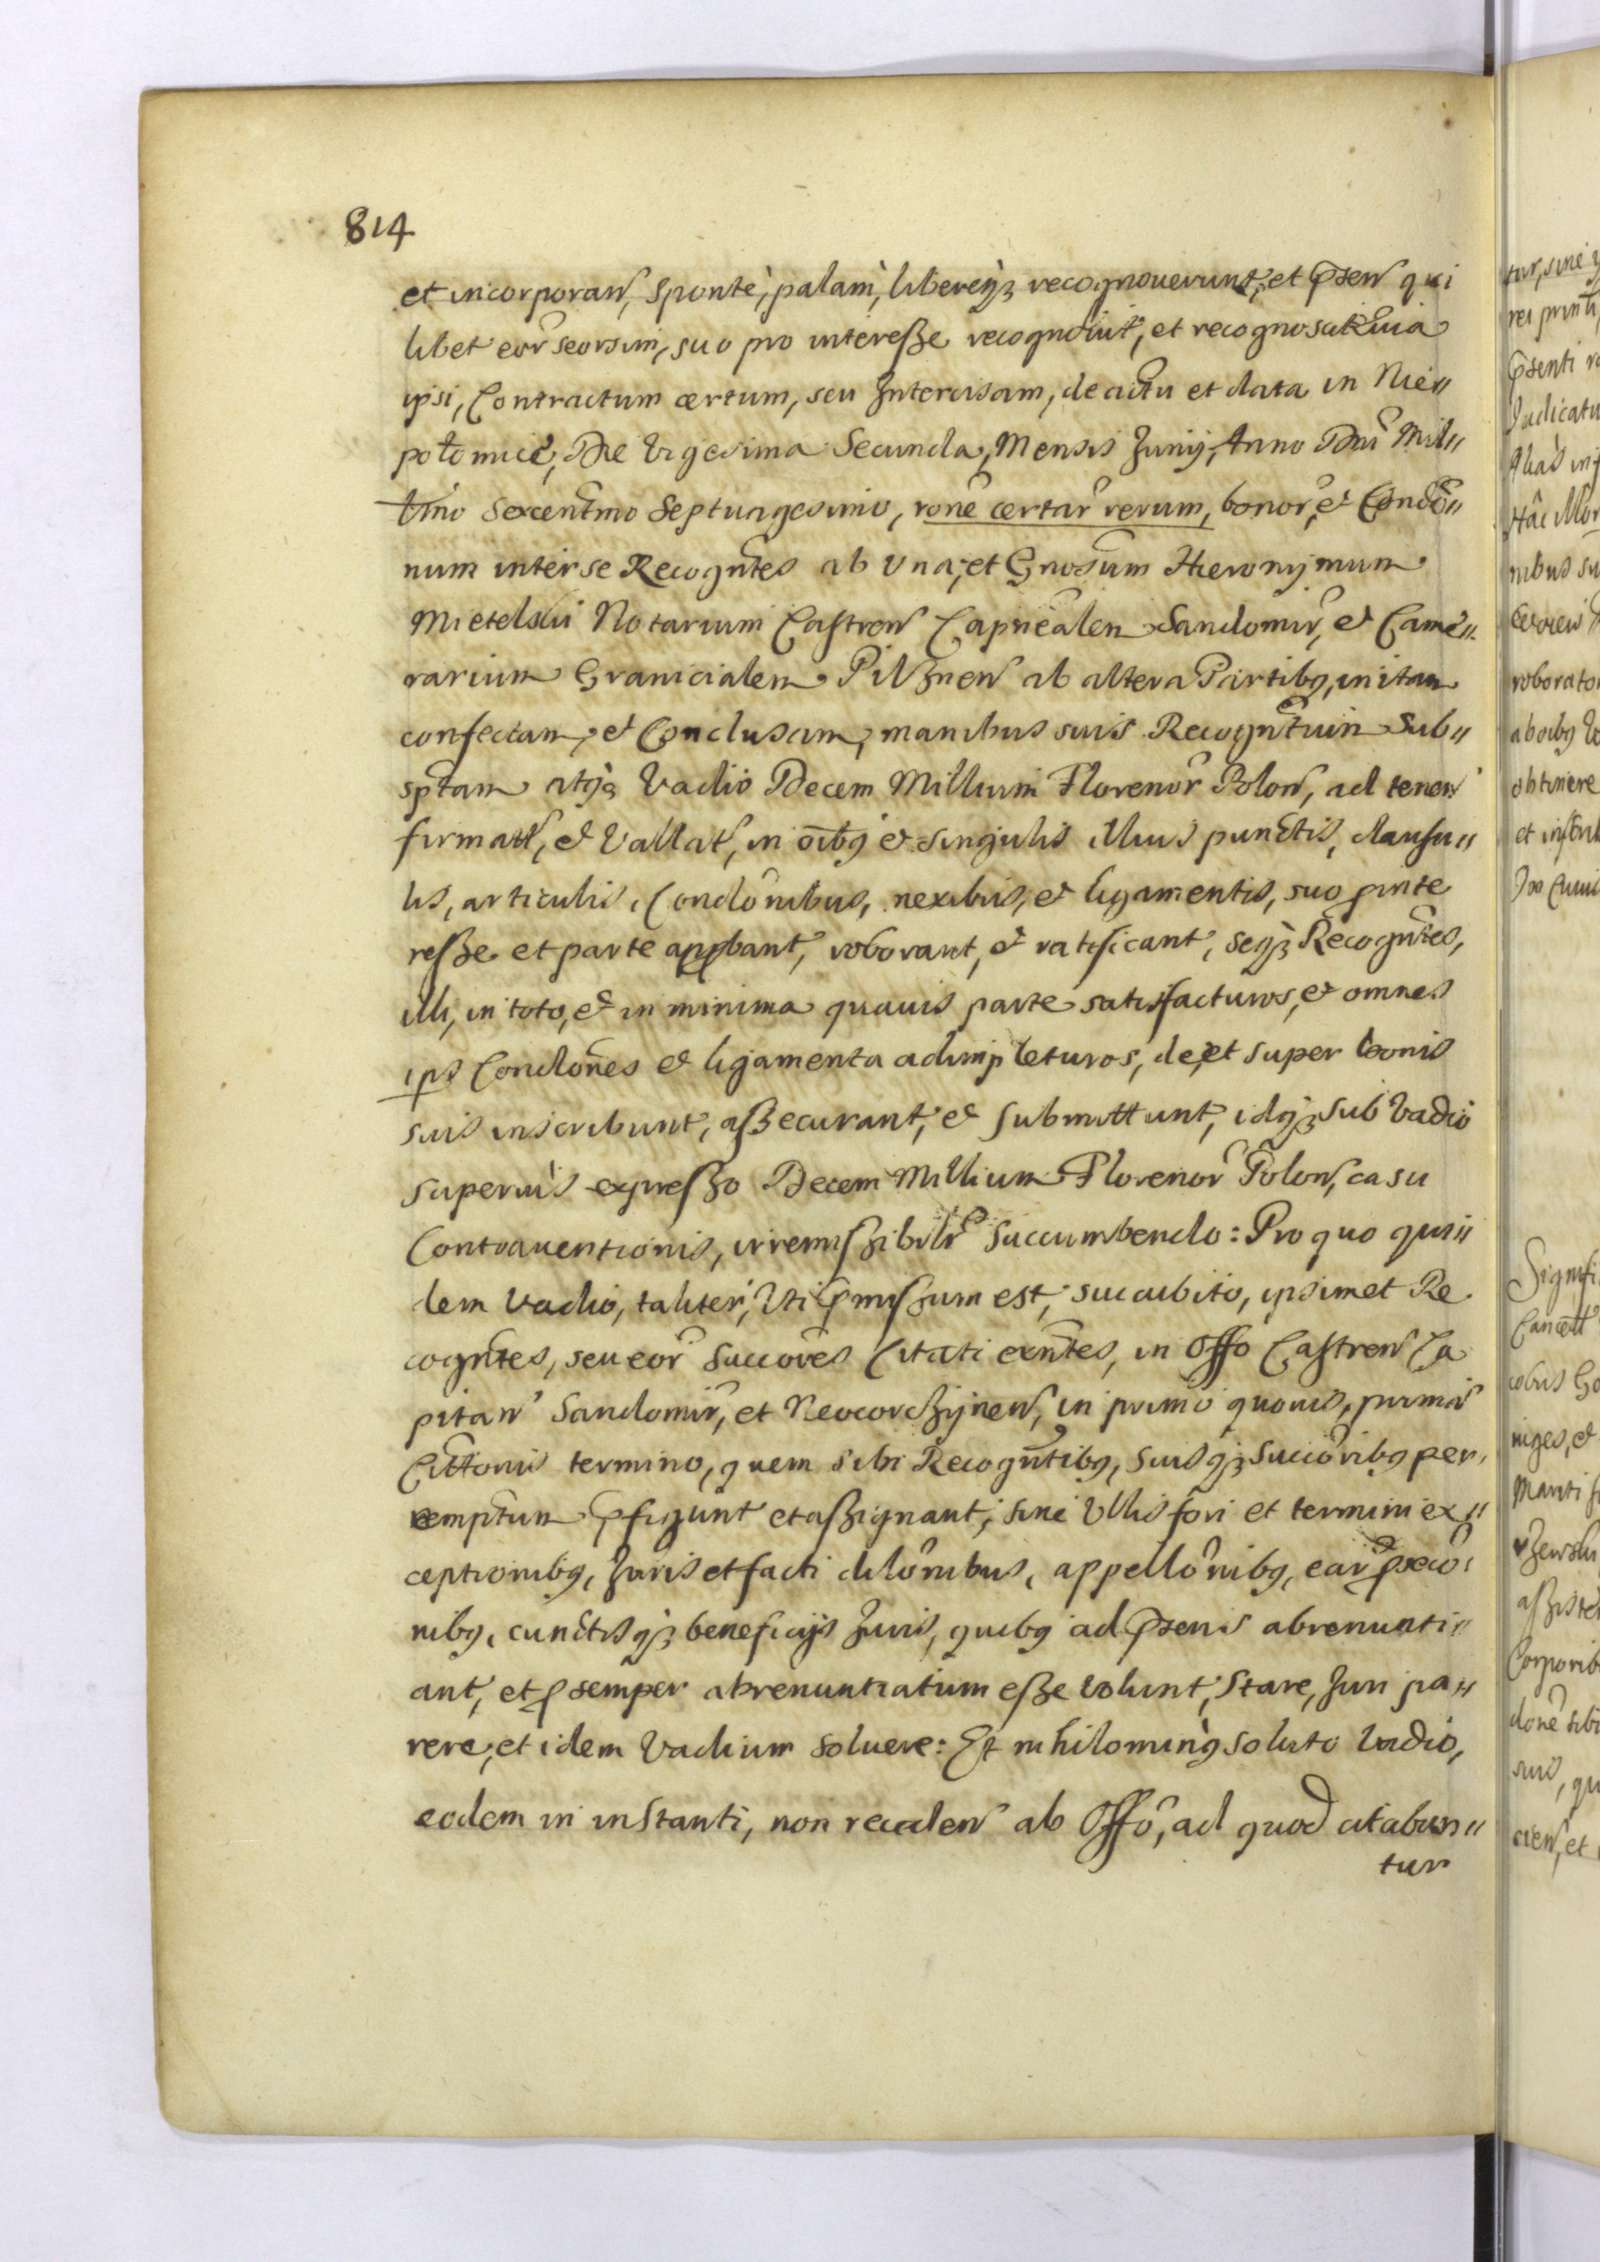 814
et incorporan̄, Spontè, palam̀, libereq̨3 recognoverunt, et p̄sen̄ qui
libet eor̄ seorsim, suo pro interesße recognovit, et recognoscit, quia
ipsi, Contractum certum, seu Intercisam, de actu et data in Nie„
połomicẽ, Die Vigesima Secunda, Mensis Junij, Anno Dn̄i Mill„
limo Sexcentmo Septuagesimo, rōne certar̄ rerum, bonor̄, et Condō„
num inter se Recogn̄tes ab Una, et Gnōsum Hieronijmum
Mietelski Notarium Castren̄ Capnēalen Sandomir̄, et Came„
rarium Granicialem Pilznen̄ ab altera Partibq, initam
confectam, et Conclusam, manibus suis Recogn̄tium Sub„
sp̄tam atq̨ Vadio Decem Millium Florenor̄ Polon̄, ad tenen̄
firmatt, et Vallat, in ōibq et singulis illius punctis, clausu„
lis, articulis, Condōnibus, nexibus, et ligamentis, suo p inte
resße et parte app̄bant, roborant, et ratificant, seq̨3 Recogn̄tes,
illi, in toto, et in minima quavis parte satisfacturos, et omnes
ips Condōnes et ligamenta adimpleturos, de, et super bonis
suis inscribunt, asßecurant, et submittunt, idq̨3 sub Vadio
superiùs expresßo Decem Millium Florenor̄ Polon̄, casu
Contraventionis, irremisßibilr̄ Succumbendo: Pro quo qui„
dem Vadio, taliter, Uti p̄misßum est, succubito, ipsimet Re
cogn̄tes, seu eor̄ Succōres Citati exn̄tes, in Offō Castren̄ Ca
pitan̄ Sandomir̄, et Neocorczijnen̄, in primo quovis, primæ
Citt̄onis termino, quem sibi Recogn̄tibq, suisq̨3 succōribq per„
remptum p̄figunt et asßignant, sine Ullis fori et termini ex„
ceptionibq, Juris et facti dilōnibus, appellōnibq, ear̄ p̄secō„
nibq, cunctisq̨3 beneficijs Juris, quibq ad p̄sens abrenunti„
ant, et p semper abrenuntiatum esße volunt, Stare, Juri pa„
rere, et idem Vadium solvere: Et nihilominq̀ soluto Vadio,
eodem in instanti, non receden̄ ab Offō, ad quod citabun„
tur